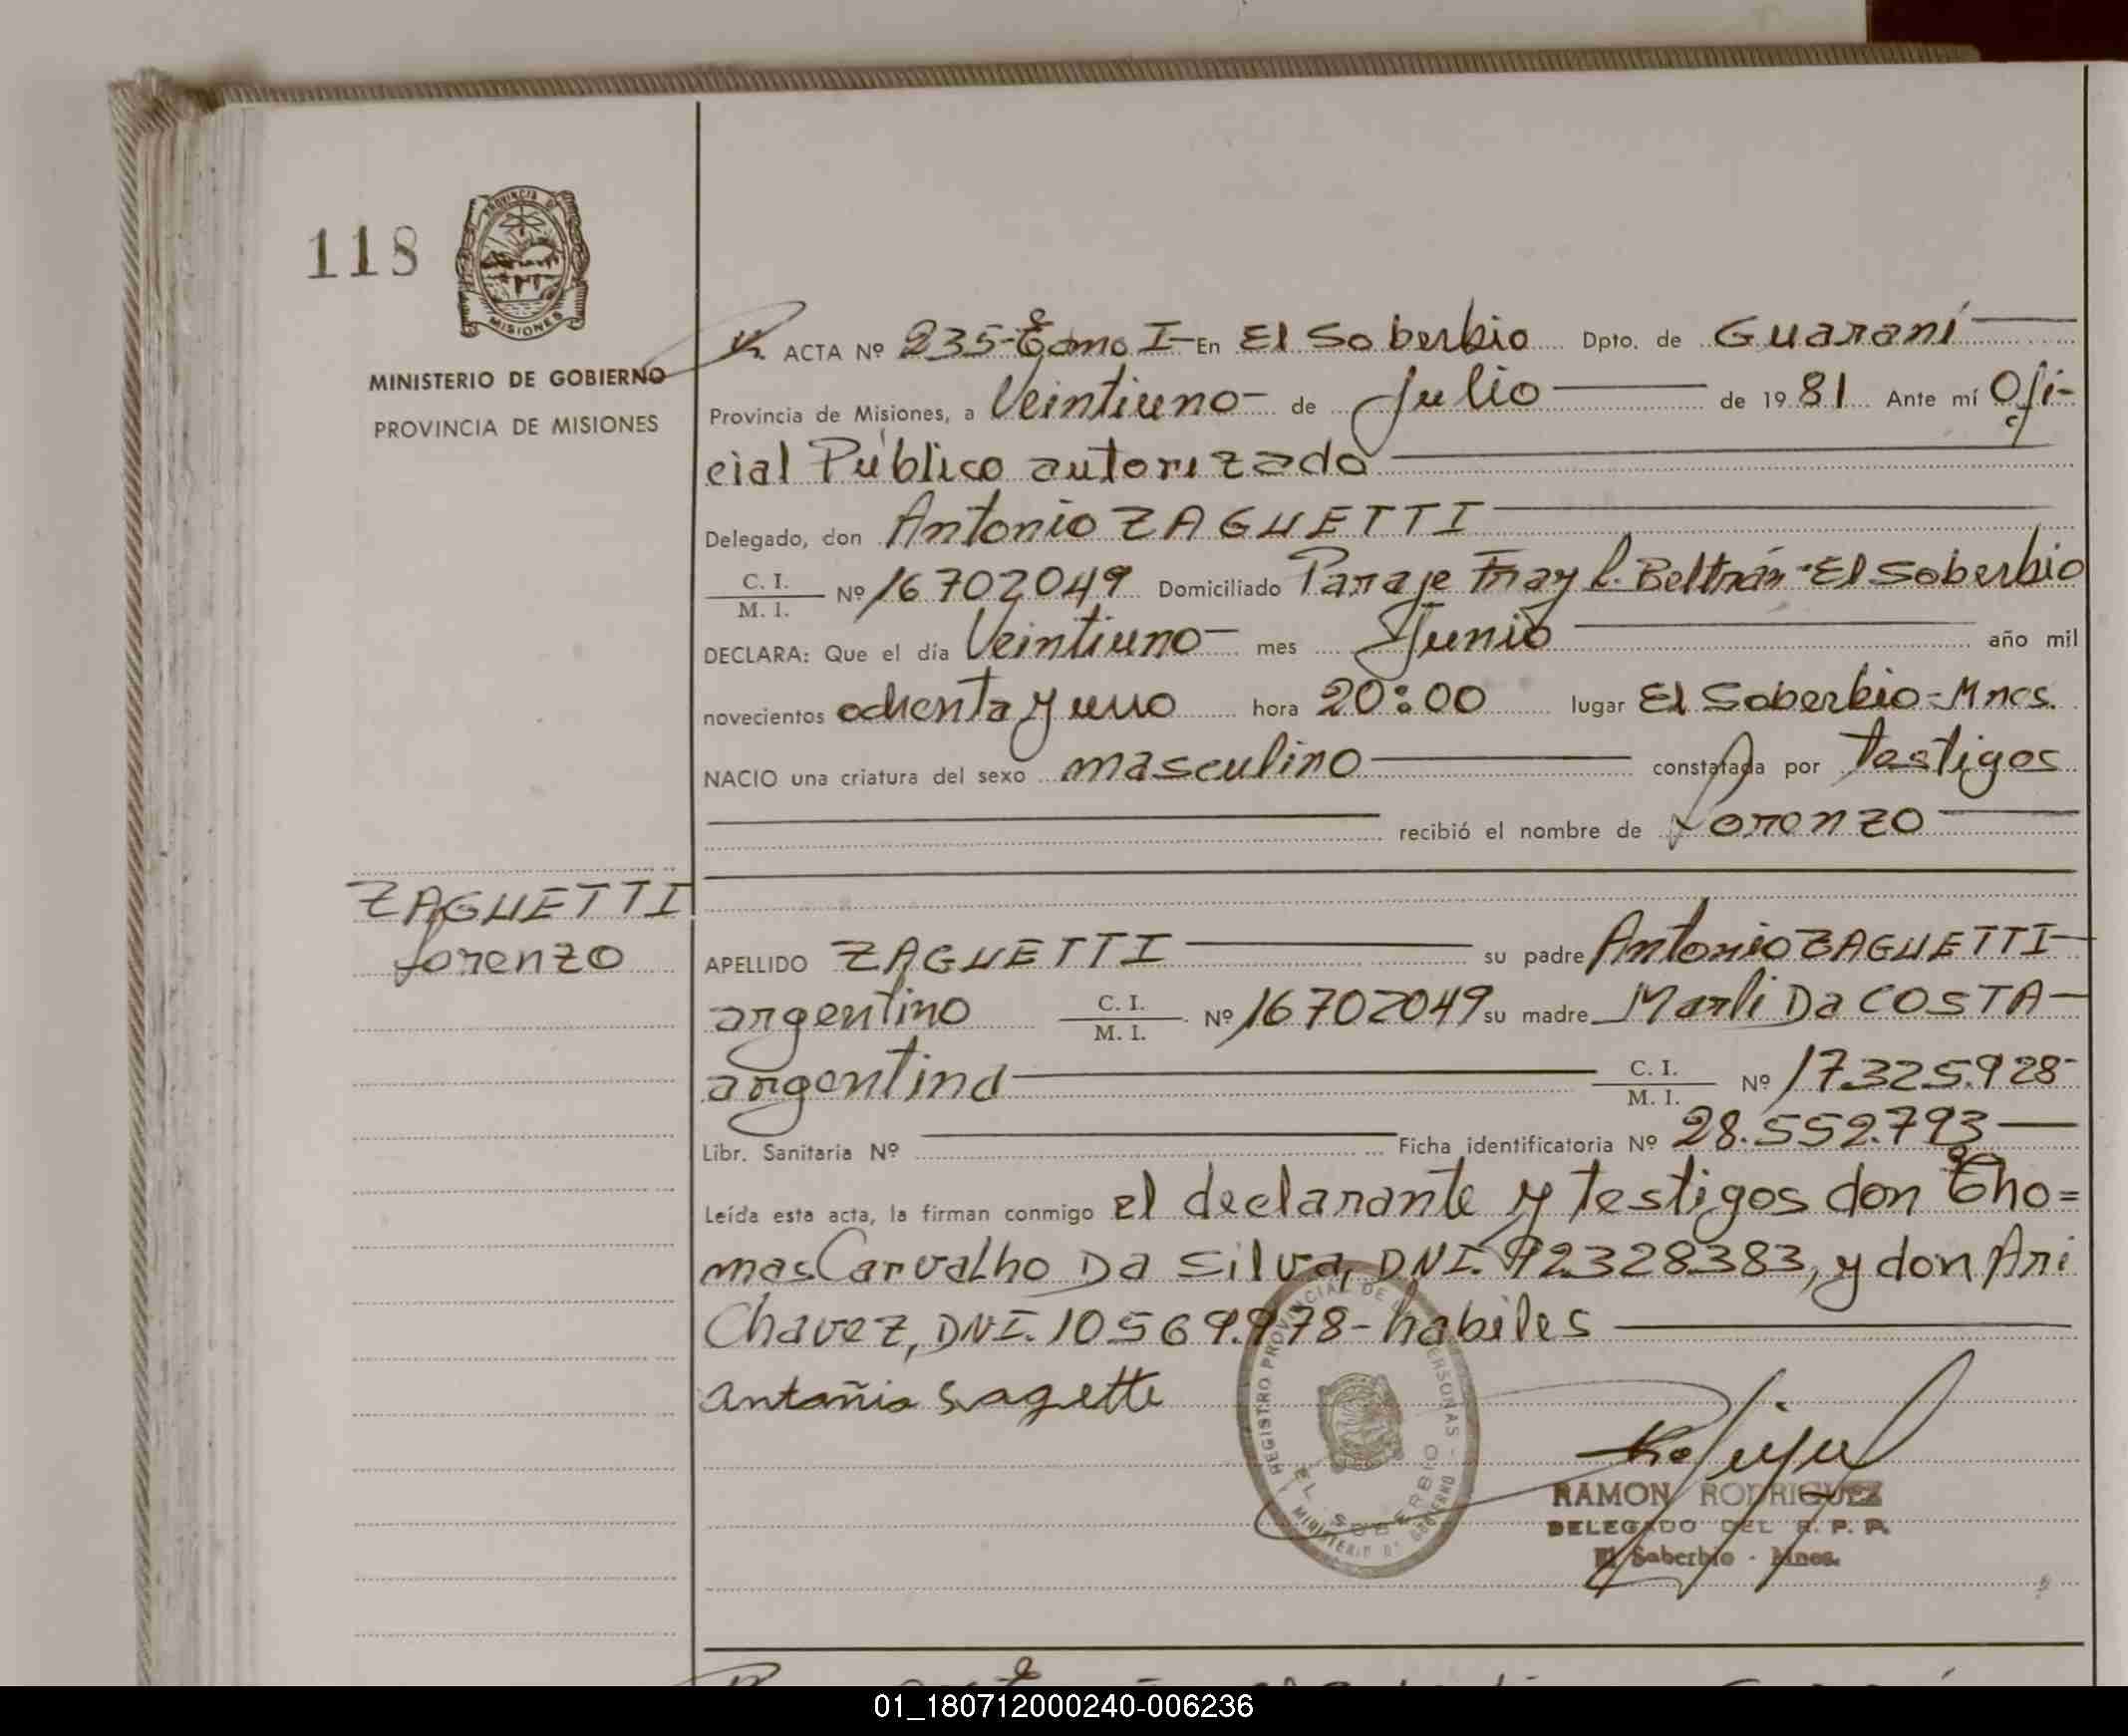 118
PROVINCIA DE
MISIONES
MINISTERIO DE GOBIERNO
PROVINCIA DE MISIONES
ZAGUETTI
Lorenzo
ACTA Nº 235-Tomo I- En El Soberbio Dpto. de Guaraní
Provincia de Misiones, a Veintiuno- de Julio de 1981 Ante mí Ofi-
cial Público autorizado
Delegado, don Antonio ZAGUETTI
C. I.
M. I. Nº 16702049 Domiciliado Paraje Fray L. Beltrán-El Soberbio
DECLARA: Que el día Veintiuno- mes Junio año mil
novecientos ochenta y uno hora 20:00 lugar El Soberbio-Mnes.
NACIO una criatura del sexo masculino constatada por testigos
recibió el nombre de Lorenzo
APELLIDO ZAGUETTI su padre Antonio ZAGUETTI-
argentino C. I.
M. I. Nº 16702049 su madre Marli Da COSTA-
argentina C. I.
M. I. Nº 17.325.928-
Libr. Sanitaria Nº Ficha identificatoria Nº 28.552.793
Leída esta acta, la firman conmigo el declarante y testigos don Tho=
mas Carvalho Da Silva, DNI. 92328383, y don Ari
Chavez, DNI. 10569.978- habiles
antoñio sagette
REGISTRO PROVINCIAL DE LAS PERSONAS -
EL SOBERBIO
MINISTERIO DE GOBIERNO
RAMON RODRIGUEZ
DELEGADO DEL R. P. P.
El Soberbio - Mnes.
01_180712000240-006236